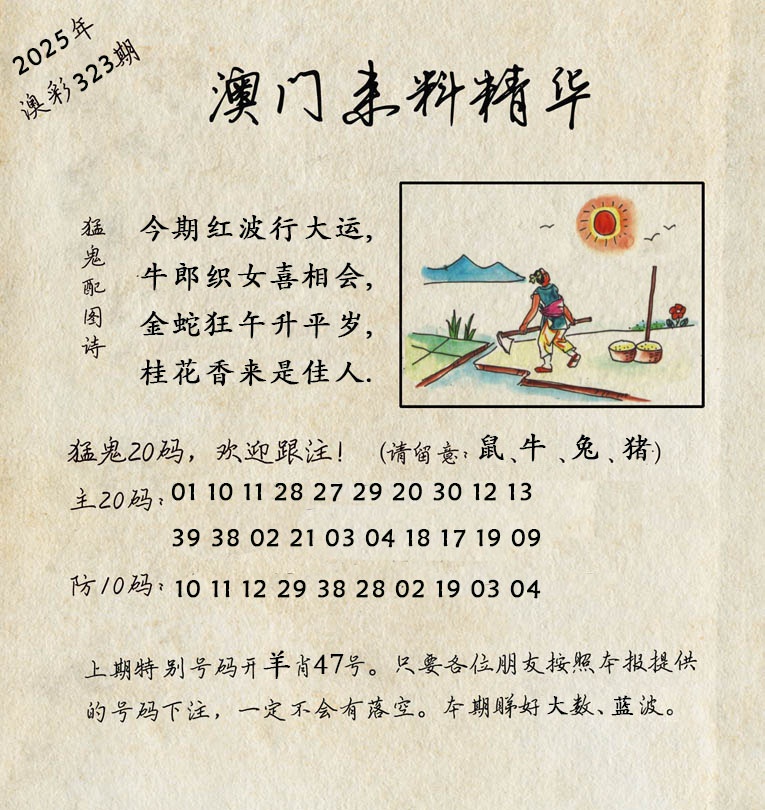 2025年
澳彩323期
澳门来料精华
猛鬼配图诗
今期红波行大运,
牛郎织女喜相会,
金蛇狂午升平岁,
桂花香来是佳人.
猛鬼20码，欢迎跟注！（请留意：鼠、牛、兔、猪）
主20码：01 10 11 28 27 29 20 30 12 13
39 38 02 21 03 04 18 17 19 09
防10码：10 11 12 29 38 28 02 19 03 04
上期特别号码开羊肖47号。只要各位朋友按照本报提供
的号码下注，一定不会有落空。本期睇好大数、蓝波。